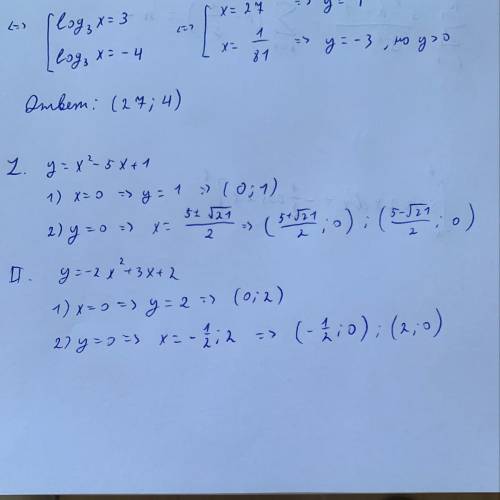 ⇔ [ log₃ x = 3 ⇔ [ x = 27 ⇒ y =
log₃ x = -4 x = 1/81 ⇒ y = -3 , но y > 0
Ответ: (27; 4)
I. y = x² - 5x + 1
1) x = 0 ⇒ y = 1 ⇒ (0; 1)
2) y = 0 ⇒ x = (5 ± √21)/2 ⇒ ((5+√21)/2 ; 0) ; ((5-√21)/2 ; 0)
II. y = -2x² + 3x + 2
1) x = 0 ⇒ y = 2 ⇒ (0; 2)
2) y = 0 ⇒ x = -1/2 ; 2 ⇒ (-1/2 ; 0) ; (2; 0)